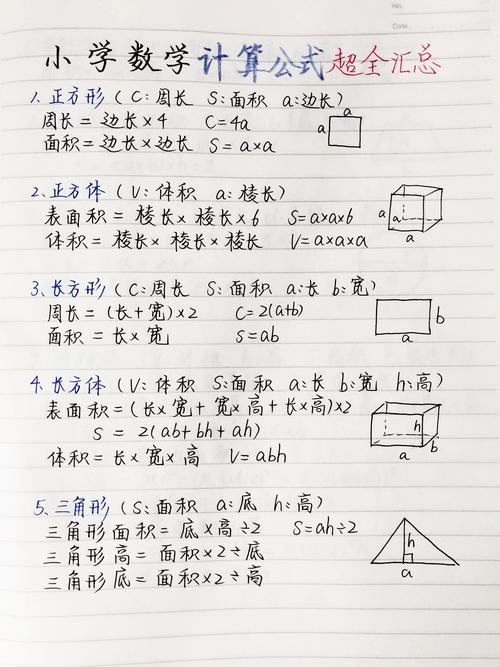 No.
Date.
小学数学计算公式超全汇总
1. 正方形 (C:周长 S:面积 a:边长)
周长 = 边长×4 C=4a
面积 = 边长×边长 S=a×a
a
a
2. 正方体 (V:体积 a:棱长)
表面积 = 棱长×棱长×6 S=a×a×6
体积 = 棱长×棱长×棱长 V=a×a×a
a
a
a
3、长方形 (C:周长 S:面积 a:长 b:宽)
周长 = (长+宽)×2 C=2(a+b)
面积 = 长×宽 S=ab
b
a
4. 长方体 (V:体积 S:面积 a:长 b:宽 h:高)
表面积=(长×宽+宽×高+长×高)×2
S = 2(ab+bh+ah)
体积=长×宽×高 V=abh
h
b
a
5、三角形 (S:面积 a:底 h:高)
三角形面积=底×高÷2 S=ah÷2
三角形高=面积×2÷底
三角形底=面积×2÷高
h
a